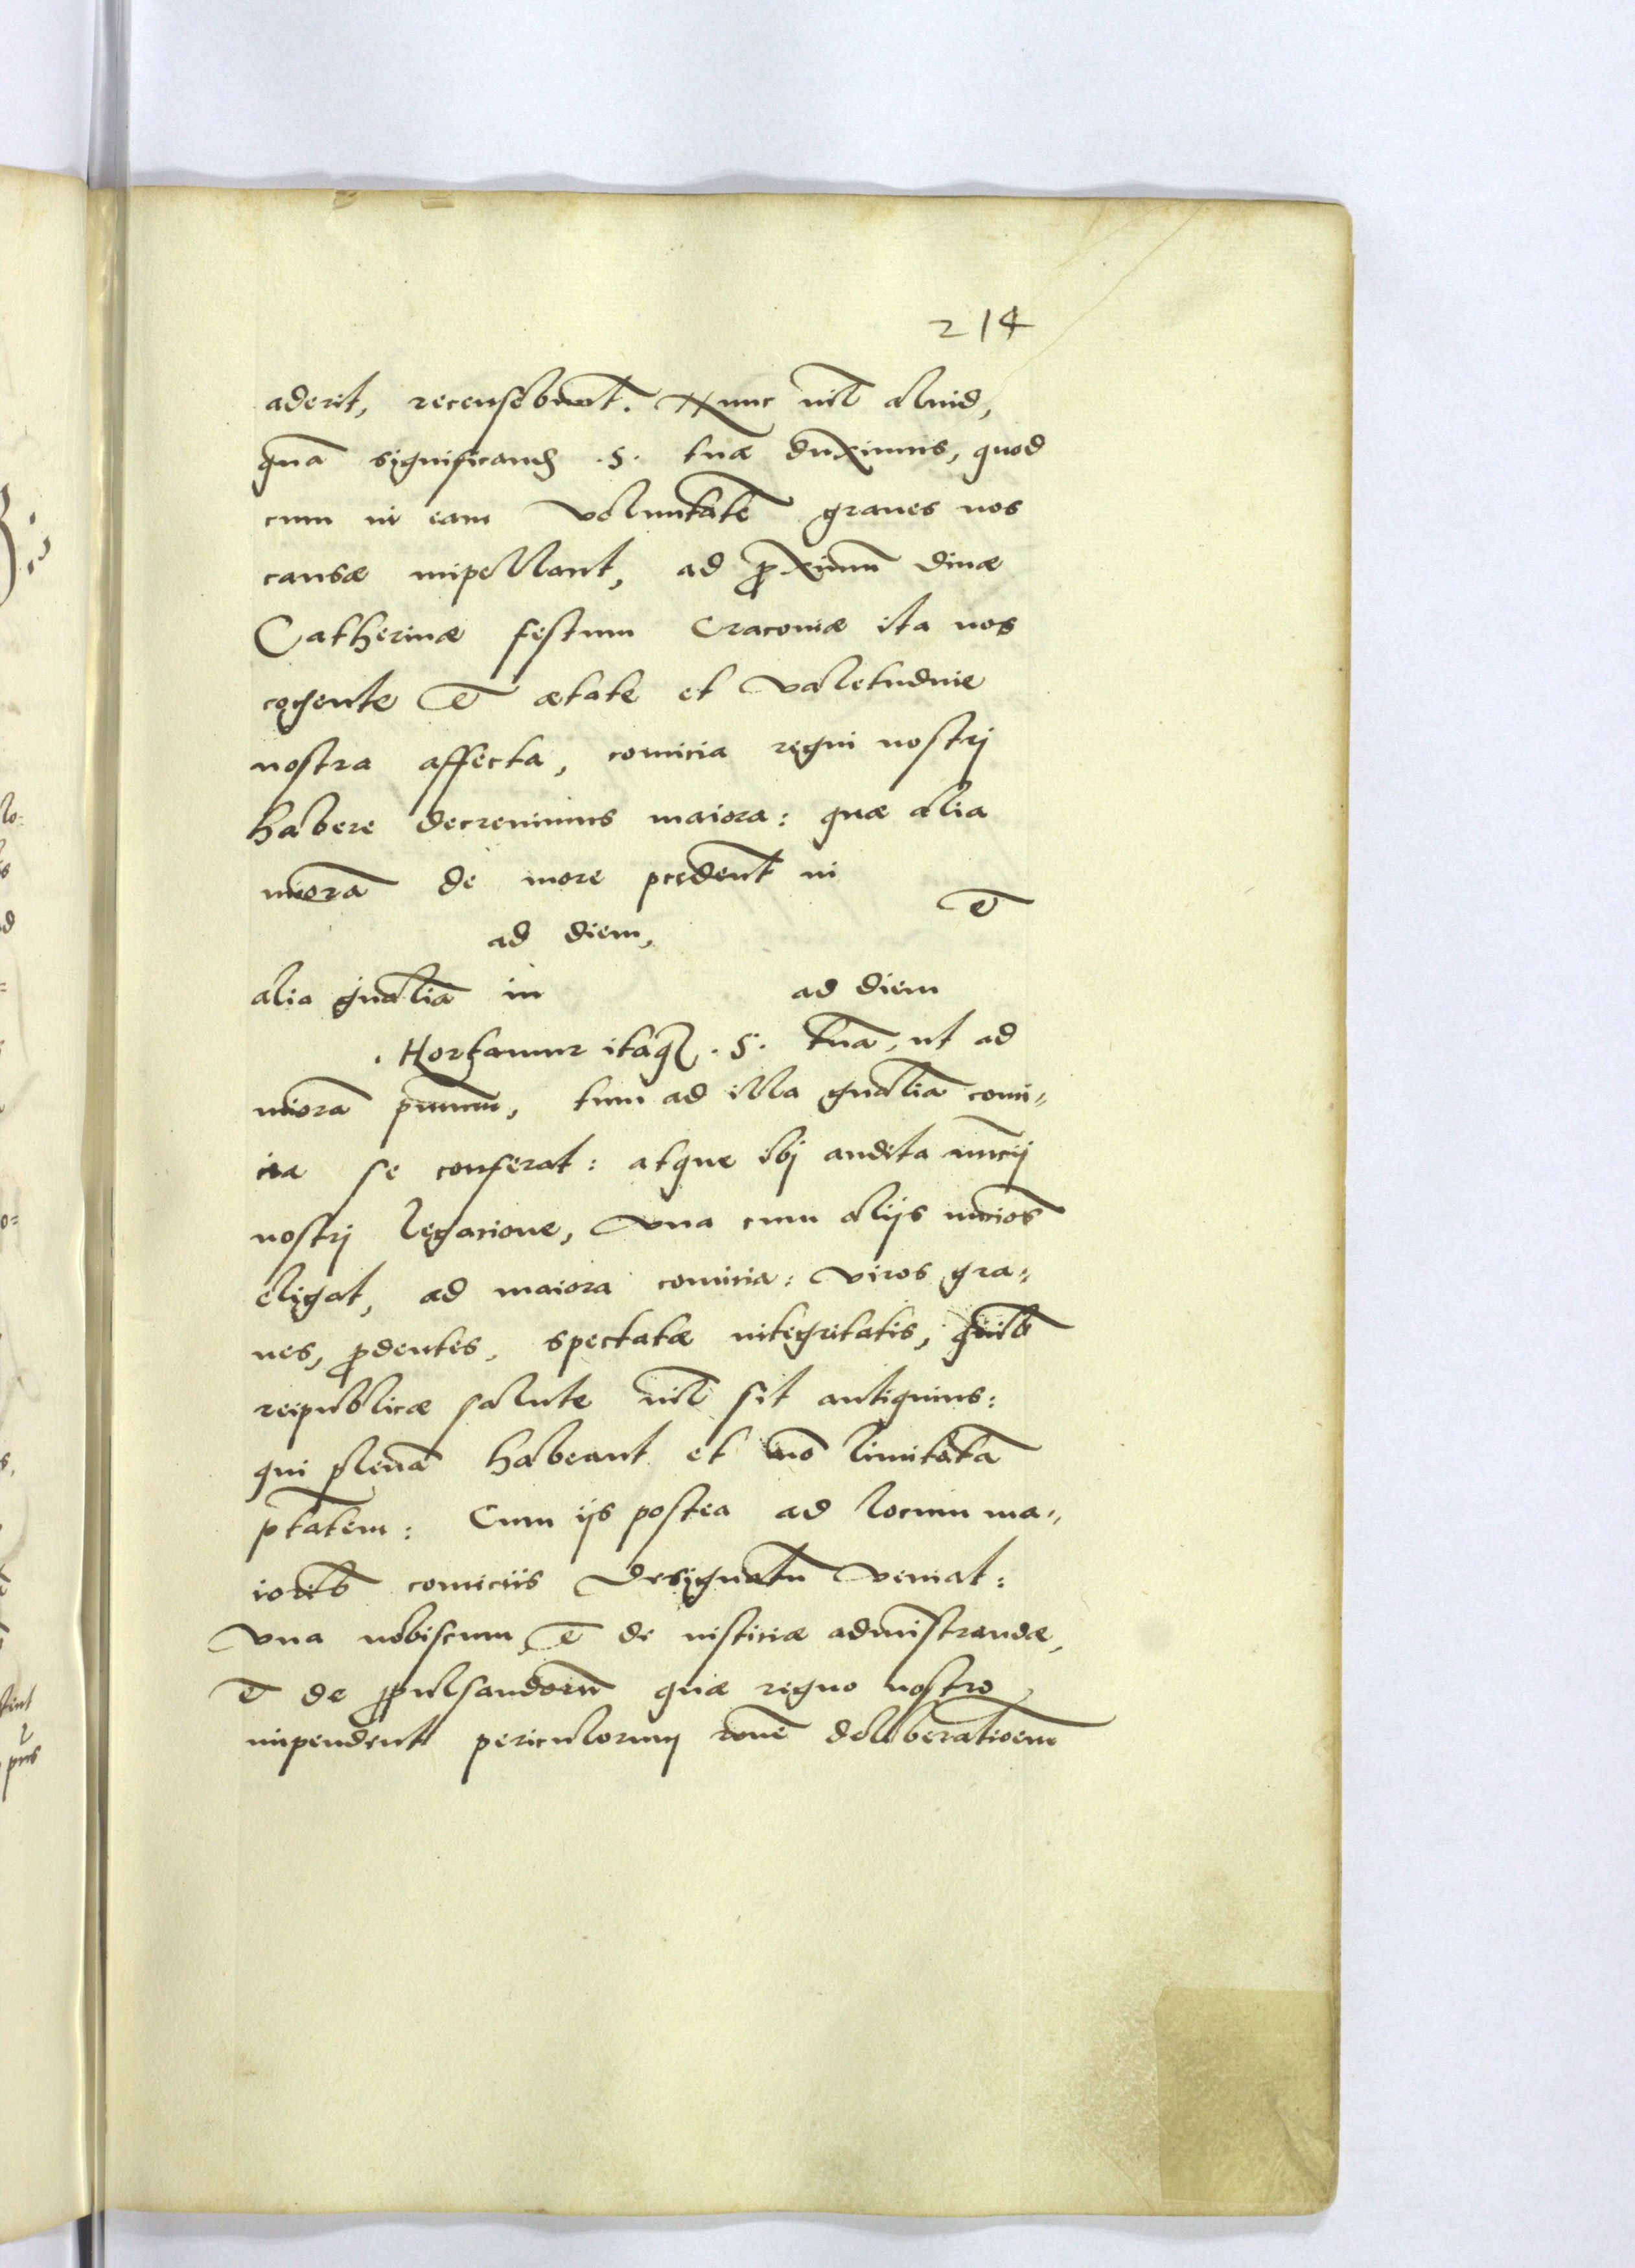 214
aderit, recensebunt. Nunc nil aliud,
quā significand .S. tuæ duximus, quod
cum in eam voluntatē graues nos
causæ impellant, ad proximū diuæ
Catherinæ festum Cracouiæ ita nos
cogente et ætate et valetudine
nostra affecta, comicia regni nostrj
habere decreuimus maiora: quæ alia
miora de more pcedent in
et
ad diem,
alia gnalia in ad diem
. Hortamur itaq .S. tuā, ut ad
miora primum, tum ad illa gnalia comi„
cia se conferat: atque ibj audita nuncij
nostrj legacione, vna cum alijs nucios
eligat, ad maiora comicia: viros gra„
ues, prudentes, spectatæ integritatis, quib
reipublicæ salute nil sit antiquius:
qui plenā habeant et nō limitatā
ptatem: Cum ijs postea ad locum ma„
iorib comiciis designatū veniat:
vna nobiscum, et de iusticiæ administrandæ,
et de propulsandorū quæ regno nostro
impendent periculorum rone deliberatioem